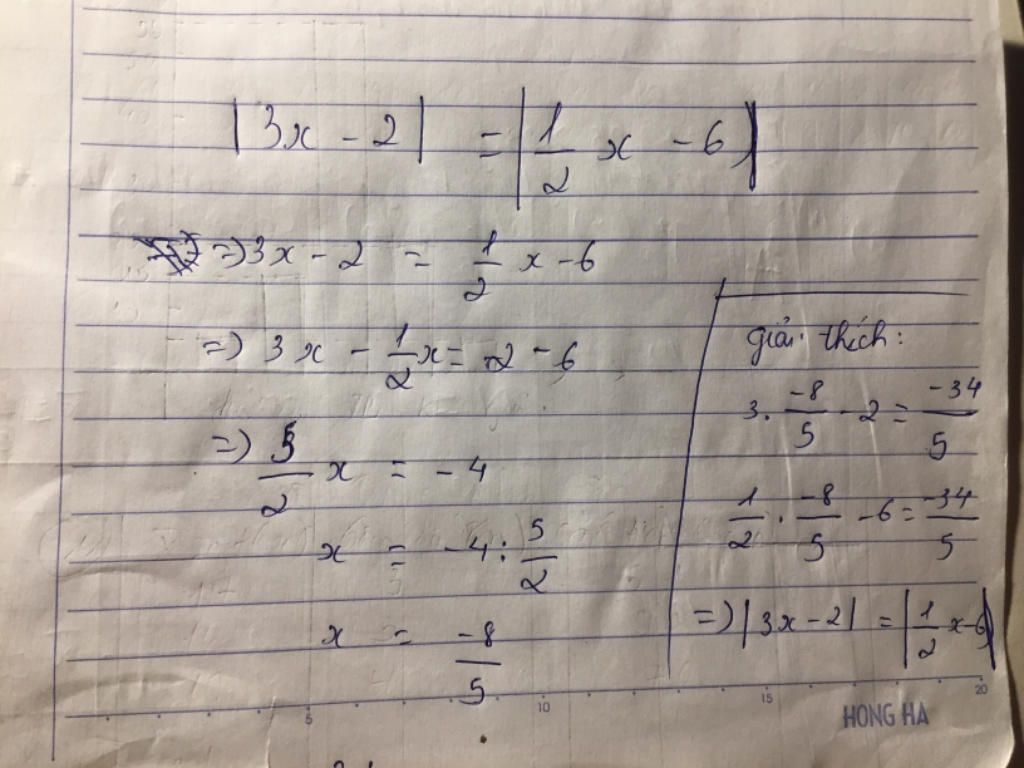 |3x - 2| = |1/2 x - 6|
=> 3x - 2 = 1/2 x - 6
=> 3x - 1/2 x = 2 - 6
=> 5/2 x = -4
x = -4 : 5/2
x = -8/5
giải thích:
3. -8/5 - 2 = -34/5
1/2 . -8/5 - 6 = -34/5
=> |3x - 2| = |1/2 x - 6|
5 10 15 20
HONG HA